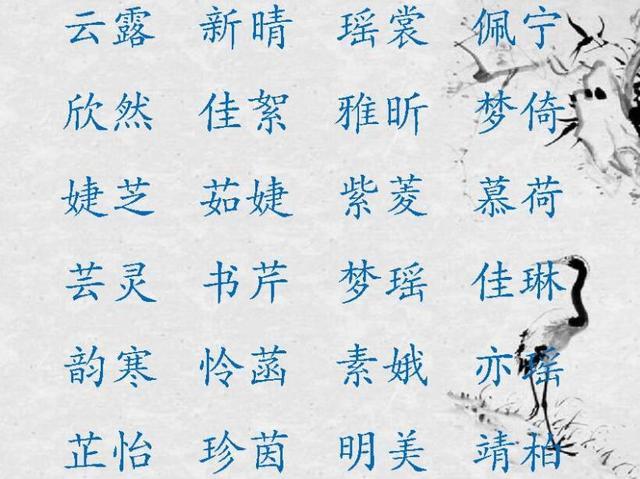 云露 新晴 瑶裳 佩宁
欣然 佳絮 雅昕 梦倚
婕芝 茹婕 紫菱 慕荷
芸灵 书芹 梦瑶 佳琳
韵寒 怜菡 素娥 亦瑶
芷怡 珍茵 明美 靖柏